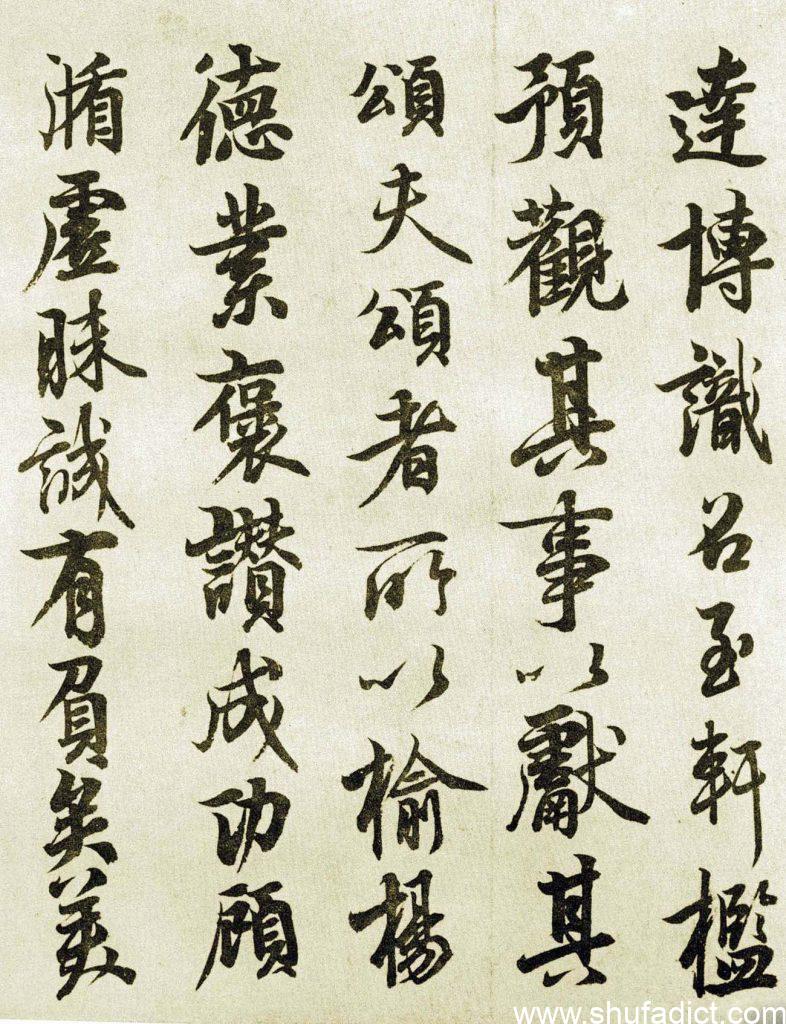 達博識召至軒檻
預觀其事以獻其
頌夫頌者所以榆楊
德業褒讚成功顧
循虛昧誠有負矣美
www.shufadict.com